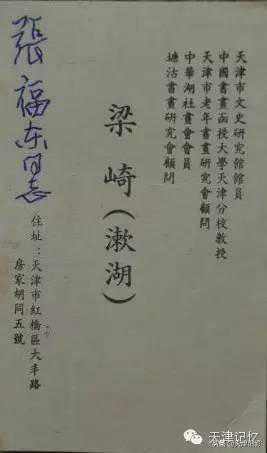 天津市文史研究館館員
中國書畫函授大學天津分校教授
天津市老年書畫研究會顧問
中華湖社畫會會員
塘沽書畫研究會顧問
梁崎(漱湖)
住址：天津市紅橋區大丰路
房家胡同五號
張福东同志
天津记忆